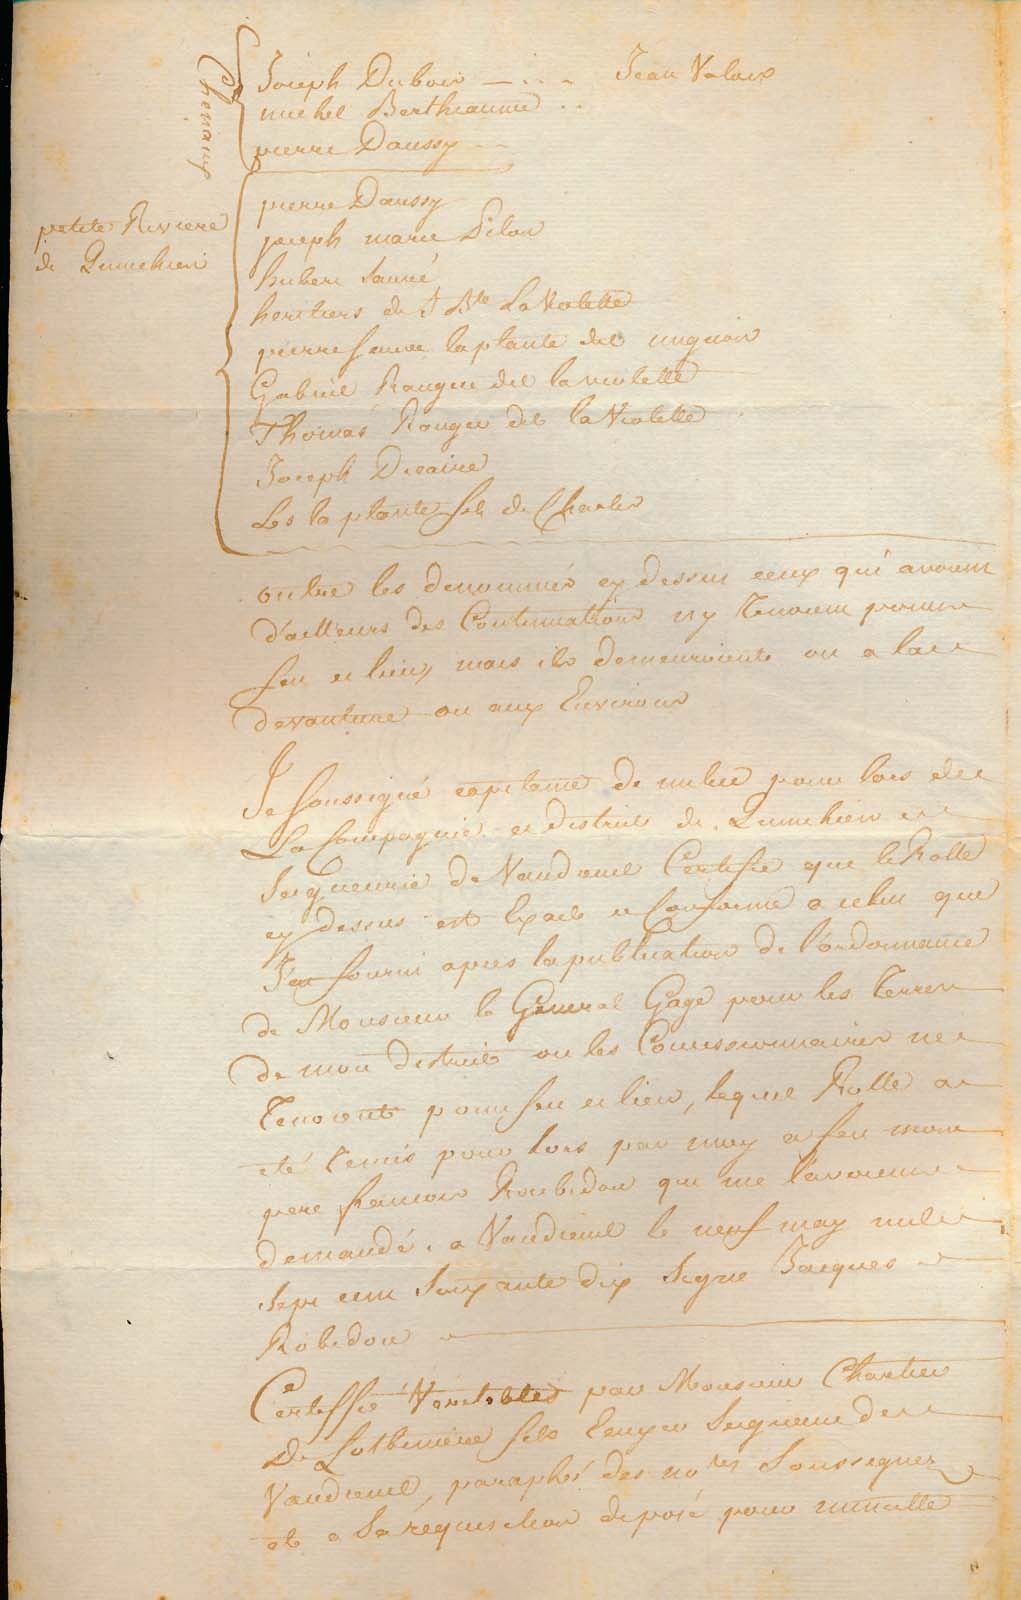 Chenaux
Joseph Dubois — . . - Jean Valois
michel Bertheaume . .
pierre Daussy - -
petite Riviere
de Quinchien
pierre Daussy
joseph marie Pilon
huber Sauvé
heritiers de J Bte LaViolette
pierre Sauvé laplante dit
Gabriel Rangée dit laviolette
Thomas Rangée dit la Violette
Joseph Dicaire
Les la plante fils de Charles
outre les denommés cy dessus ceux qui avoient
d'ailleurs des Continuations ny Tenoient point
feu et lieu, mais ils demeuroient ou a la
devanture ou aux Environs
Je soussigné capitaine de milice pour lors de
La Compagnie et district de Quinchien
Seigneurie de Vaudreuil Certifie que le Rolle
cy dessus est Exact et Conforme a celui que
J'ai fourni apres la publication de l'ordonnance
de Monsieur le General Gage pour les Terres
de mon district ou les Concessionnaires ne
Tenoient point feu et lieu, lequel Rolle a
eté remis pour lors par moy a feu mon
pere francois Roubidou qui me l'avoit
demandé. a Vaudreuil le neuf may mille
Sept cent Soixante dix Signé Jacques
Robidou
Certiffié Véritable par Monsieur Chartier
De Lotbiniere fils Ecuyer Seigneur de
Vaudreuil, paraphé des notres Soussignez
et a Sa requisition deposé pour minutte